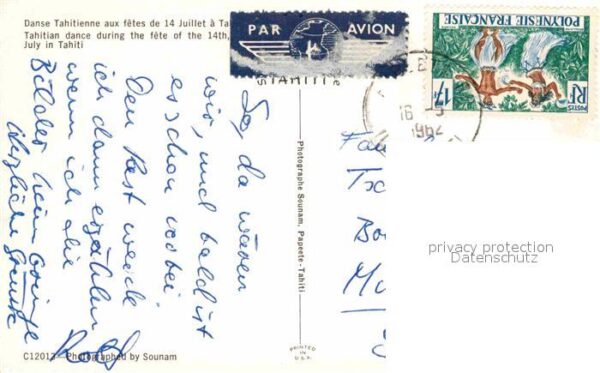 Danse Tahitienne aux fêtes de 14 Juillet à Ta
Tahitian dance during the fête of the 14th,
July in Tahiti
PAR AVION
TAHITI
16
1962
POLYNÉSIE FRANÇAISE
POSTES
17F
RF
So, da wären
wir, und bald ist
es schon vorbei.
Den Rest werde
ich dann erzählen
wenn ich die
Bilder
Herzliche Grüsse
Photographe Sounam, Papeete-Tahiti
PRINTED IN
U.S.A.
privacy protection
Datenschutz
C12013 - Photographed by Sounam